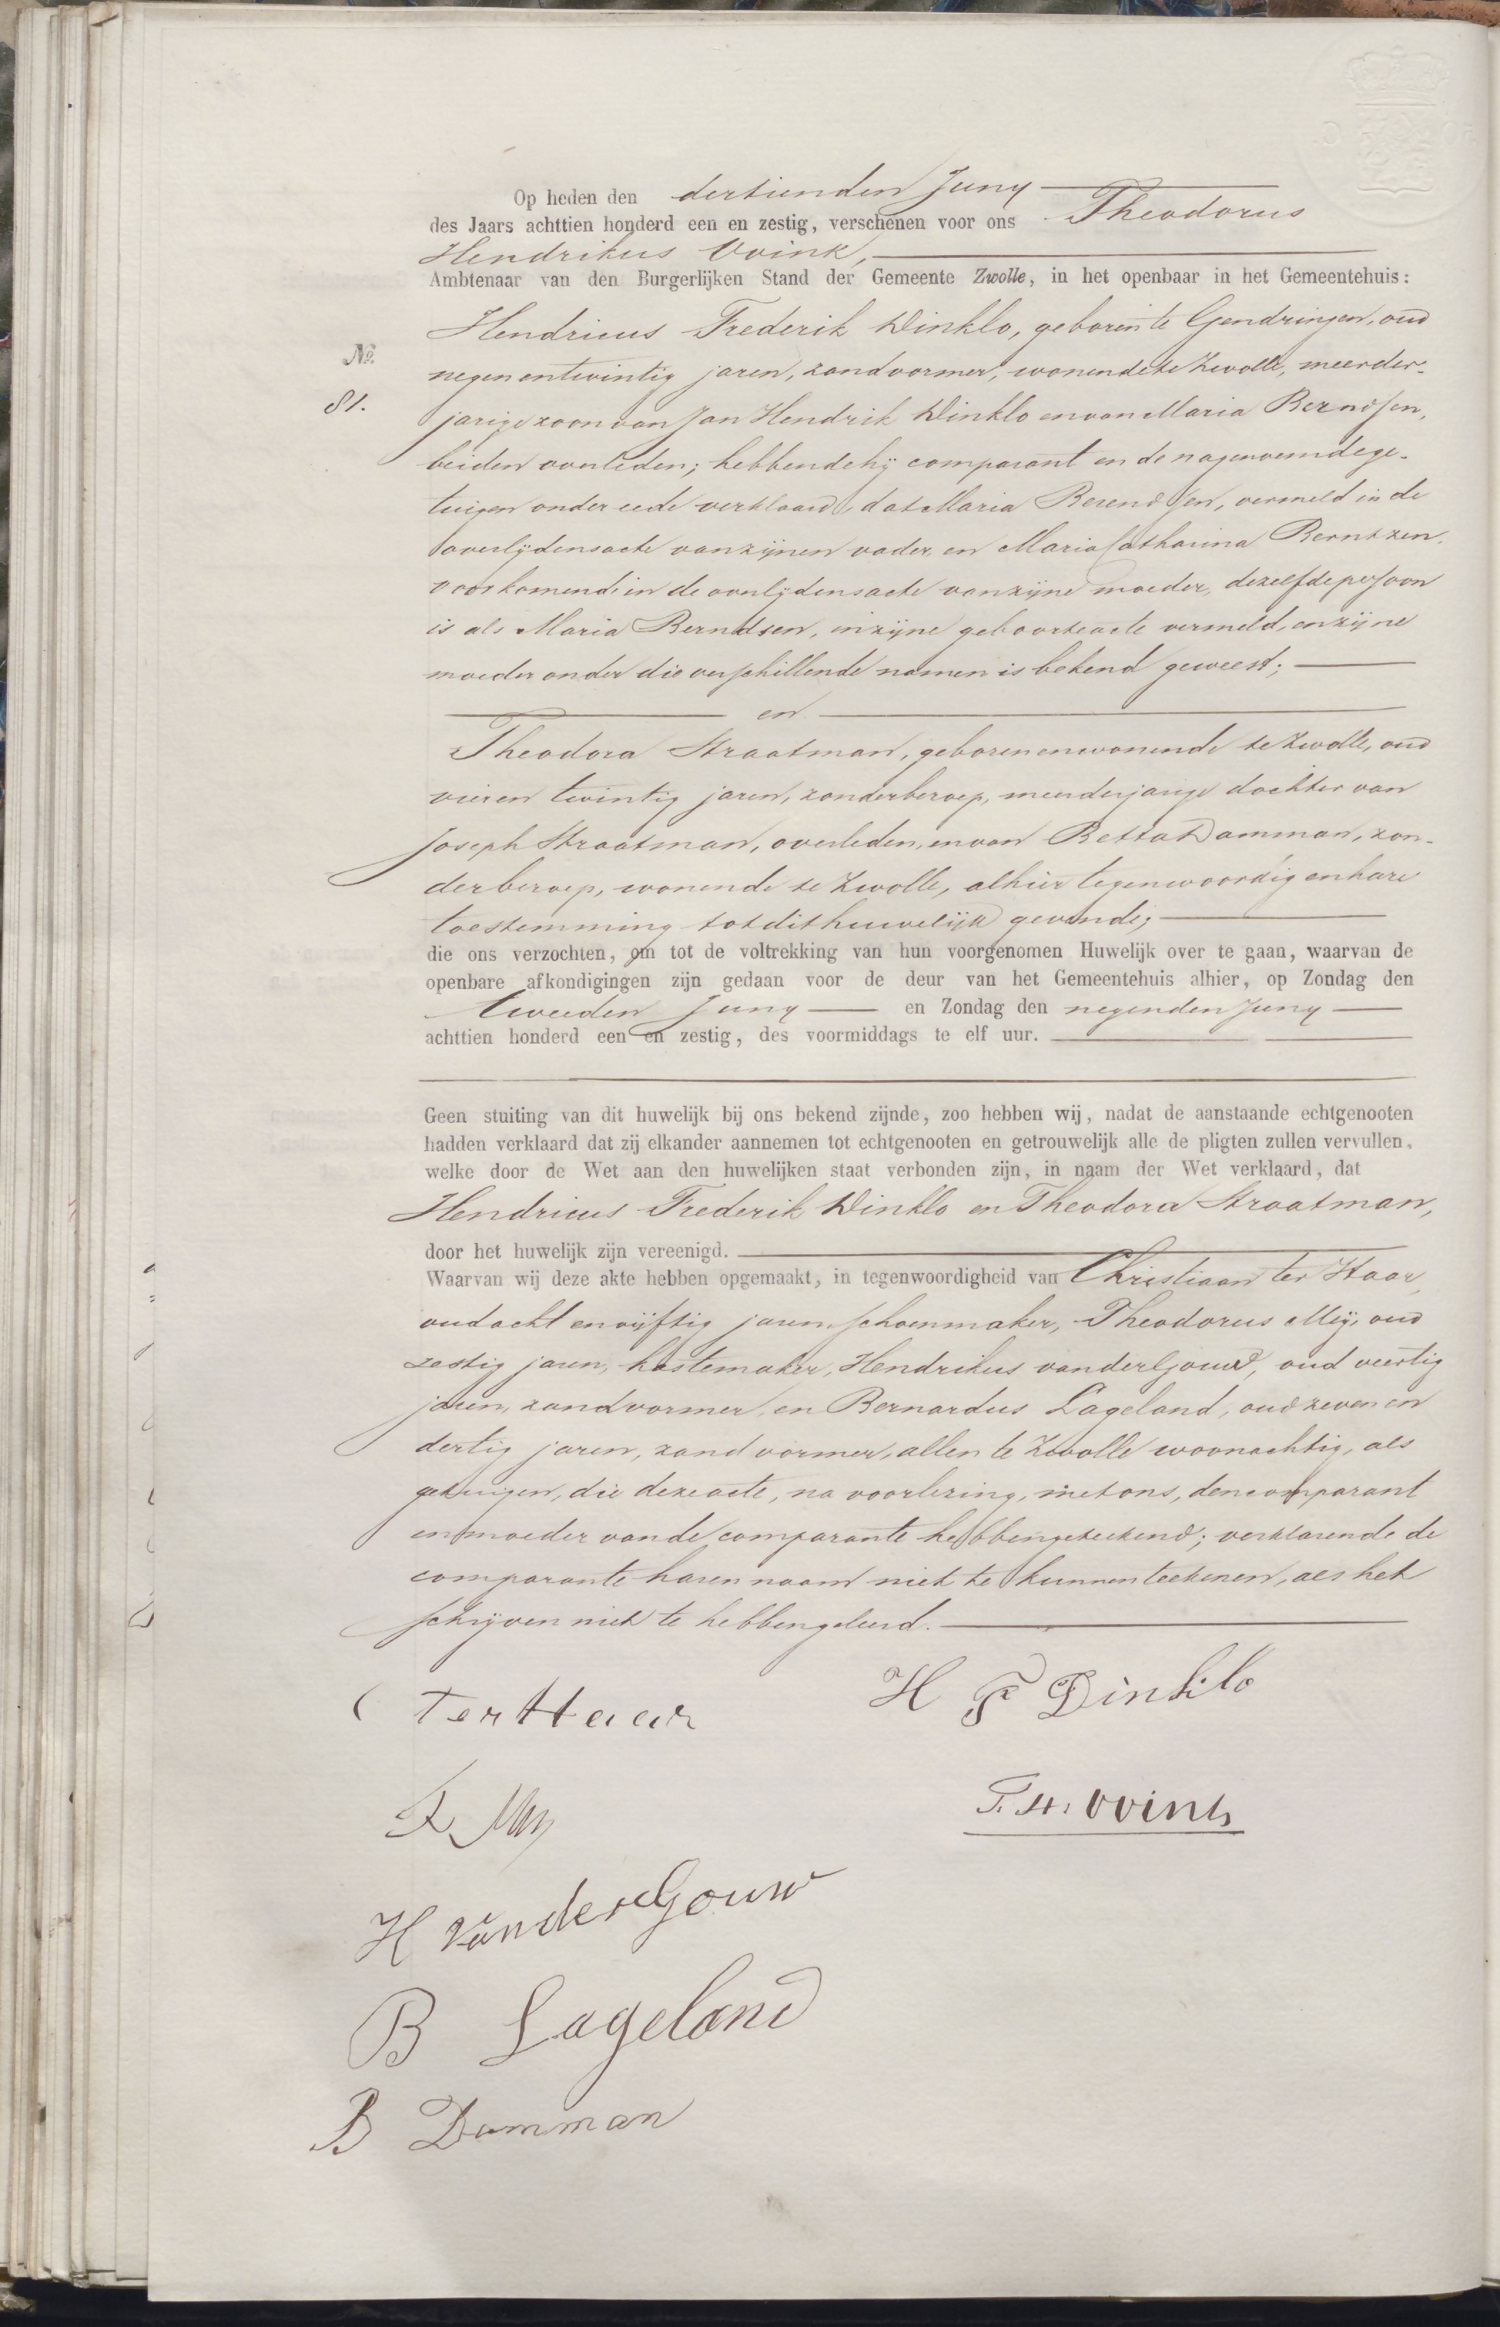 Op heden den dertienden Juny
des Jaars achttien honderd een en zestig, verschenen voor ons Theodorus
Hendrikus Vvink,
Ambtenaar van den Burgerlijken Stand der Gemeente Zwolle, in het openbaar in het Gemeentehuis:
Hendricus Frederik Dinklo, geboren te Gendringen, oud
No.
negenentwintig jaren, zandvormer, wonende te Zwolle, meerder-
81.
jarige zoon van Jan Hendrik Dinklo en van Maria Berndsen,
beiden overleden; hebbende hij comparant en de nagenoemde ge-
tuigen onder eede verklaard, dat Maria Berendsen, vermeld in de
overlijdensacte van zijnen vader, en Maria Catharina Berntzen,
voorkomende in de overlijdensacte van zijne moeder, dezelfde persoon
is als Maria Berndsen, in zijne geboorteacte vermeld, en zijne
moeder onder die verschillende namen is bekend geweest;
en
Theodora Straatman, geboren en wonende te Zwolle, oud
vieren twintig jaren, zonder beroep, meerderjarige dochter van
Joseph Straatman, overleden, en van Betta Damman, zon-
der beroep, wonende te Zwolle, alhier tegenwoordig en hare
toestemming tot dit huwelijk gevende;
die ons verzochten, om tot de voltrekking van hun voorgenomen Huwelijk over te gaan, waarvan de
openbare afkondigingen zijn gedaan voor de deur van het Gemeentehuis alhier, op Zondag den
tweeden Juny en Zondag den negenden Juny
achttien honderd een en zestig, des voormiddags te elf uur.
Geen stuiting van dit huwelijk bij ons bekend zijnde, zoo hebben wij, nadat de aanstaande echtgenooten
hadden verklaard dat zij elkander aannemen tot echtgenooten en getrouwelijk alle de pligten zullen vervullen,
welke door de Wet aan den huwelijken staat verbonden zijn, in naam der Wet verklaard, dat
Hendricus Frederik Dinklo en Theodora Straatman,
door het huwelijk zijn vereenigd.
Waarvan wij deze akte hebben opgemaakt, in tegenwoordigheid van Christiaan ter Haar,
oud acht en vijftig jaren, schoenmaker, Theodorus Meij, oud
zestig jaren, kastemaker, Hendrikus van der Gouw, oud veertig
jaren, zandvormer, en Bernardus Lageland, oud zeven en
dertig jaren, zandvormer, allen te Zwolle woonachtig, als
getuigen, die deze acte, na voorlezing, met ons, den comparant
en moeder van de comparante hebben geteekend; verklarende de
comparante haren naam niet te kunnen teekenen, als het
schrijven niet te hebben geleerd.
C ter Haar
H F Dinklo
T. H. Vvink
H van der Gouw
B Lageland
B Damman